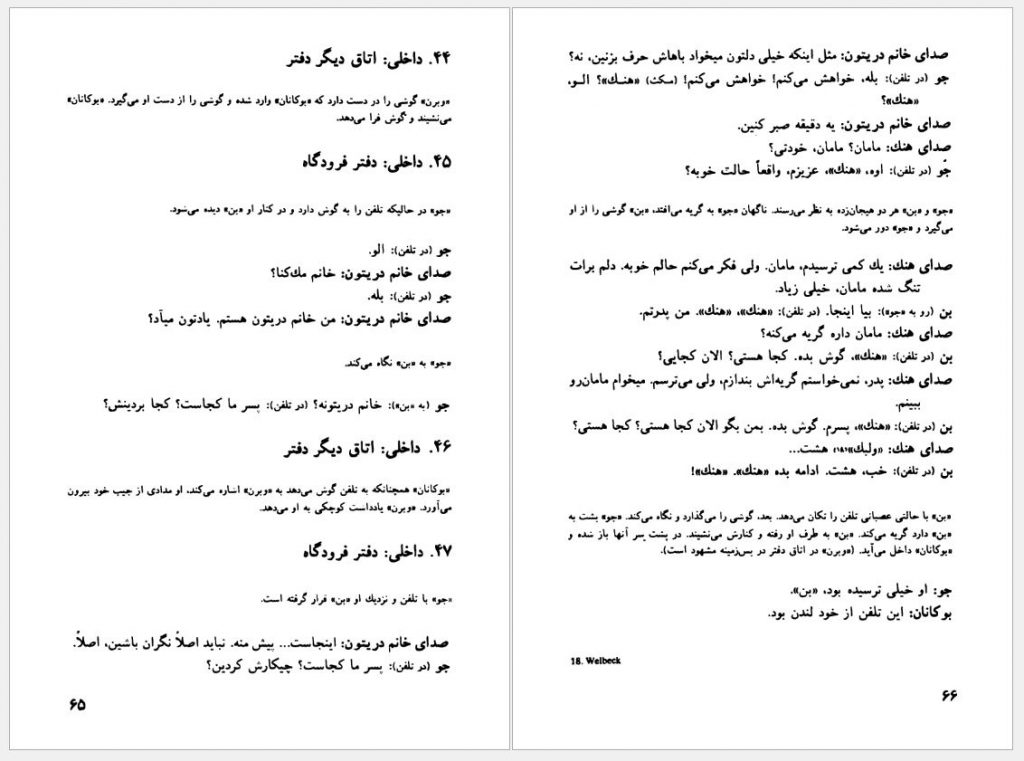 ۴۴. داخلی: اتاق دیگر دفتر
«وبرن» گوشی را در دست دارد که «بوکانان» وارد شده و گوشی را از دست او می‌گیرد. «بوکانان»
می‌نشیند و گوش فرا می‌دهد.
۴۵. داخلی: دفتر فرودگاه
«جو» در حالیکه تلفن را به گوش دارد و در کنار او «بن» دیده می‌شود.
جو (در تلفن): الو.
صدای خانم دریتون: خانم مك‌کنا؟
جو (در تلفن): بله.
صدای خانم دریتون: من خانم دریتون هستم. یادتون میآد؟
«جو» به «بن» نگاه می‌کند.
جو (به «بن»): خانم دریتونه؟ (در تلفن): پسر ما کجاست؟ کجا بردینش؟
۴۶. داخلی: اتاق دیگر دفتر
«بوکانان» همچنانکه به تلفن گوش می‌دهد به «وبرن» اشاره می‌کند، او مدادی از جیب خود بیرون
می‌آورد. «وبرن» یادداست کوچکی به او می‌دهد.
۴۷. داخلی: دفتر فرودگاه
«جو» با تلفن و نزدیك او «بن» قرار گرفته است.
صدای خانم دریتون: اینجاست... پیش منه. نباید اصلاً نگران باشین، اصلاً.
جو (در تلفن): پسر ما کجاست؟ چیکارش کردین؟
۶۵
صدای خانم دریتون: مثل اینکه خیلی دلتون میخواد باهاش حرف بزنین، نه؟
جو (در تلفن): بله، خواهش می‌کنم! خواهش می‌کنم! (سکث) «هنك»؟ الـو،
«هنك»؟
صدای خانم دریتون: یه دقیقه صبر کنین.
صدای هنك: مامان؟ مامان، خودتی؟
جو (در تلفن): اوه، «هنك»، عزیزم، واقعاً حالت خوبه؟
«جو» و «بن» هر دو هیجان‌زده به نظر می‌رسند. ناگهان «جو» به گریه می‌افتد، «بن» گوشی را از او
می‌گیرد و «جو» دور می‌شود.
صدای هنك: یك کمی ترسیدم، مامان. ولی فکر می‌کنم حالم خوبه. دلم برات
تنگ شده مامان، خیلی زیاد.
بن (رو به «جو»): بیا اینجا. (در تلفن): «هنك»، «هنك». من پدرتم.
صدای هنك: مامان داره گریه می‌کنه؟
بن (در تلفن): «هنك»، گوش بده. کجا هستی؟ الان کجایی؟
صدای هنك: پدر، نمی‌خواستم گریه‌اش بندازم، ولی می‌ترسم. میخوام مامان‌رو
ببینم.
بن (در تلفن): «هنك»، پسرم. گوش بده. بمن بگو الان کجا هستی؟ کجا هستی؟
صدای هنك: «ولبك»(۱۸) هشت...
بن (در تلفن): خب، هشت. ادامه بده «هنك». «هنك»!
«بن» با حالتی عصبانی تلفن را تکان می‌دهد. بعد، گوشی را می‌گذارد و نگاه می‌کند. «جو» پشت به
«بن» دارد گریه می‌کند. «بن» به طرف او رفته و کنارش می‌نشیند. در پشت سر آنها باز شده و
«بوکانان» داخل می‌آید. («وبرن» در اتاق دفتر در پس‌زمینه مشهود است).
جو: او خیلی ترسیده بود، «بن».
بوکانان: این تلفن از خود لندن بود.
18. Welbeck
۶۶